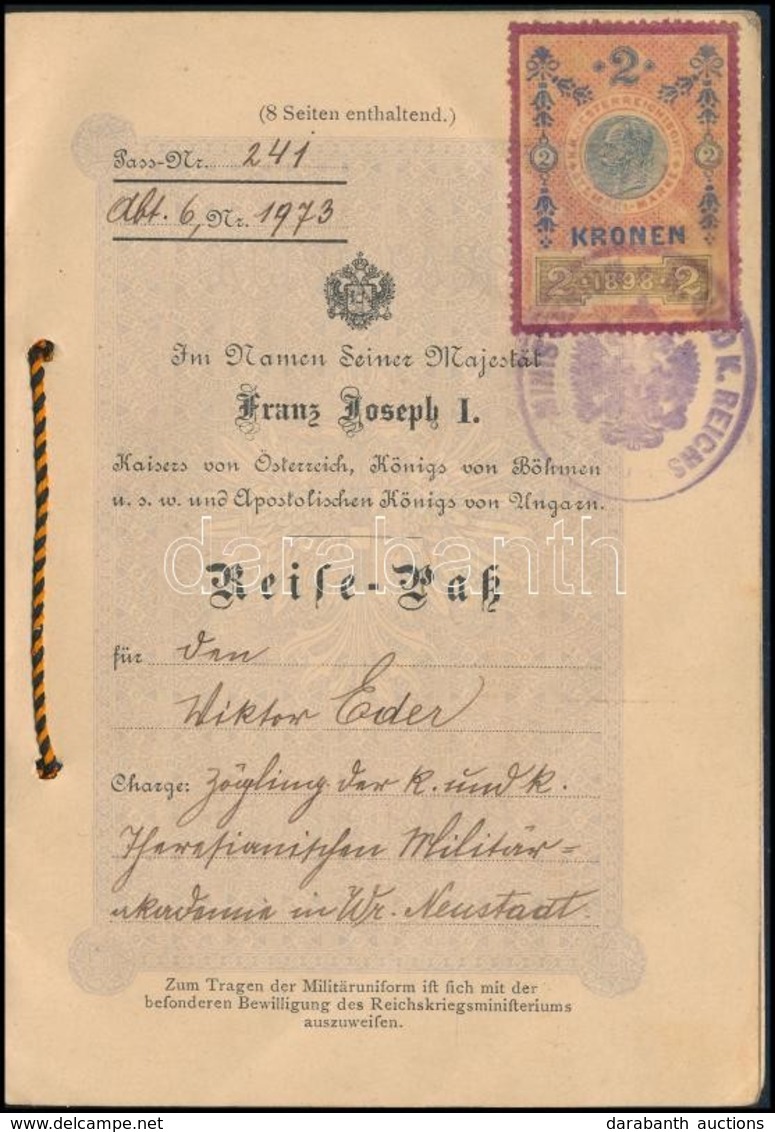 (8 Seiten enthaltend.)
Pass-Nr. 241
Abt. 6, Nr. 1973
2
2 2
KRONEN
2 1898 2
MINIS D K. REICHS
Im Namen Seiner Majestät
Franz Joseph I.
Kaisers von Österreich, Königs von Böhmen
u. s. w. und Apostolischen Königs von Ungarn.
darabanth
Reise-Paß
für den
Wiktor Eder
Charge: Zögling der k. und k.
Theresianischen Militär=
akademie in Wr. Neustadt.
Zum Tragen der Militäruniform iſt ſich mit der
beſonderen Bewilligung des Reichskriegsminiſteriums
auszuweiſen.
www.delcampe.net
darabanth auctions